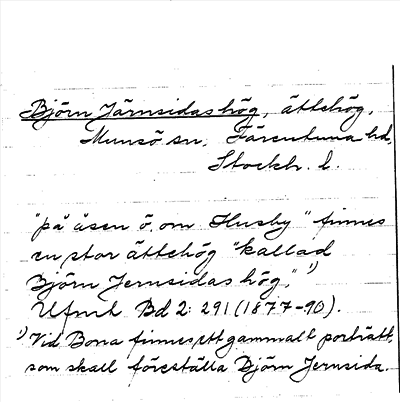 Björn Järnsidas hög, ättehög,
Munsö sn, Färentuna hd,
Stockh. l.
"på åsen ö. om Husby" finnes
en stor ättehög "kallad
Björn Jernsidas hög," ¹)
Ufmt Bd 2: 291 (1877-90).
¹) Vid Bona finnes ett gammalt porträtt,
som skall föreställa Björn Jernsida.